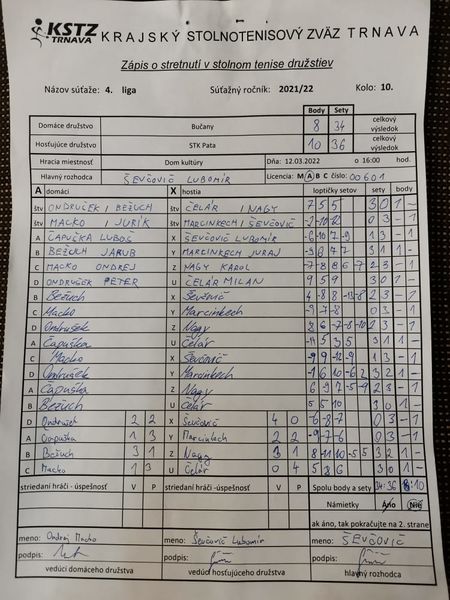 KSTZ TRNAVA KRAJSKÝ STOLNOTENISOVÝ ZVÄZ TRNAVA
Zápis o stretnutí v stolnom tenise družstiev
Názov súťaže: 4. liga Súťažný ročník: 2021/22 Kolo: 10.
Body Sety
Domáce družstvo Bučany 8 34 celkový výsledok
Hosťujúce družstvo STK Pata 10 36 celkový výsledok
Hracia miestnosť Dom kultúry Dňa: 12.03.2022 o 16:00 hod.
Hlavný rozhodca ŠEVČOVIČ ĽUBOMÍR Licencia: M A B C číslo: 00601
A domáci X hostia loptičky setov sety body
štv ONDRUŠEK / BEŽUCH štv ČELÁR / NAGY 7 5 5 3 0 1 -
štv MACKO / JURÍK štv MARCINKECH / ŠEVČOVIČ 0 3 - 1
A ČAPUŠKA ĽUBOŠ X ŠEVČOVIČ ĽUBOMÍR -6 -10 7 -9 1 3 - 1
B BEŽUCH JAKUB Y MARCINKECH JURAJ -9 6 4 7 3 1 1 -
C MACKO ONDREJ Z NAGY KAROL 2 3 - 1
D ONDRUŠEK PETER U ČELÁR MILAN 9 5 9 3 0 1 -
B Bežuch X Ševčovič 2 3 - 1
C Macko Y Marcinkech -9 -7 -8 0 3 - 1
D Ondrušek Z Nagy 8 6 -7 -8 -10 2 3 - 1
A Čapuška U Čelár -11 5 3 5 3 1 1 -
C Macko X Ševčovič -9 9 -12 -9 1 3 - 1
D Ondrušek Y Marcinkech 2 3 - 1
A Čapuška Z Nagy 6 9 -7 -5 -9 2 3 - 1
B Bežuch U Čelár 5 5 10 3 0 1 -
D Ondrušek 2 2 X Ševčovič 4 0 -6 -8 -7 0 3 - 1
A Čapuška 1 3 Y Marcinkech 2 2 -9 -7 -6 0 3 - 1
B Bežuch 3 1 Z Nagy 3 1 8 -11 10 -5 5 3 2 1 -
C Macko 1 3 U Čelár 0 4 5 8 6 3 0 1 -
striedaní hráči - úspešnosť V P striedaní hráči - úspešnosť V P Spolu body a sety 34:36 8:10
Námietky Áno Nie
ak áno, tak pokračujte na 2. strane
meno: Ondrej Macko meno: Ševčovič Ľubomír meno: ŠEVČOVIČ
podpis: podpis: podpis:
vedúci domáceho družstva vedúci hosťujúceho družstva hlavný rozhodca